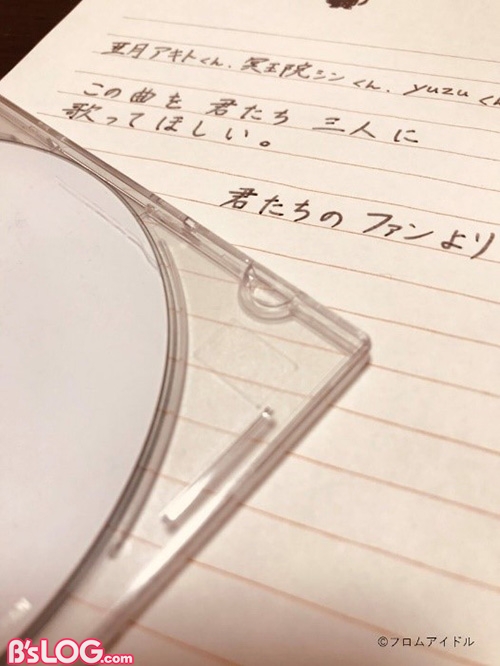 亜月アキトくん、冥王院シンくん、yuzuく
この曲を 君たち 三人に
歌ってほしい。
君たちの ファンより
B'sLOG.com
©フロムアイドル